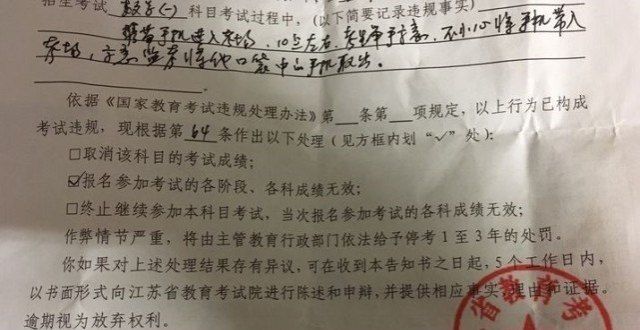 招生考试 数学(一) 科目考试过程中,(以下简要记录违规事实)
携带手机进入考场,10点左右,考生带手机,不小心将手机带入
考场,监考将他口袋中的手机取出。
依据《国家教育考试违规处理办法》第 条第 项规定,以上行为已构成
考试违规,现根据第 64 条作出以下处理(见方框内划“√”处):
□取消该科目的考试成绩;
☑报名参加考试的各阶段、各科成绩无效;
□终止继续参加本科目考试,当次报名参加考试的各科成绩无效;
作弊情节严重,将由主管教育行政部门依法给予停考 1 至 3 年的处罚。
你如果对上述处理结果存有异议,可在收到本告知书之日起,5 个工作日内,
以书面形式向江苏省教育考试院进行陈述和申辩,并提供相应事实、理由和证据。
逾期视为放弃权利。
省教育考